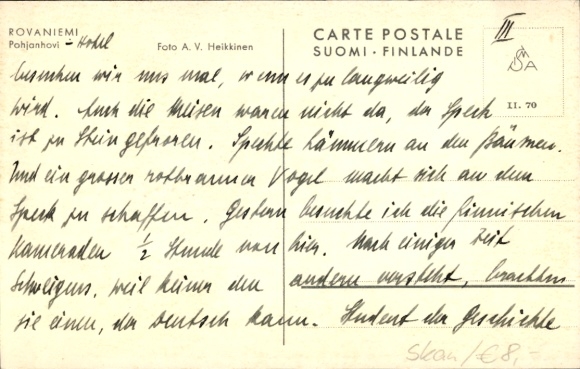 III
ROVANIEMI
Pohjanhovi - Hotel
Foto A. V. Heikkinen
CARTE POSTALE
SUOMI · FINLANDE
II. 70
besuchen wir uns mal, wenn es zu langweilig
wird. Auch die Meisen waren nicht da, der Speck
ist zu Stein gefroren. Spechte hämmern an den Bäumen.
Und ein grosser rotbrauner Vogel macht sich an dem
Speck zu schaffen. Gestern besuchte ich die finnischen
Kameraden ½ Stunde von hier. Nach einiger Zeit
Schweigens, weil keiner den andern versteht, brachten
sie einen, der Deutsch kann. Student der Geschichte
Skan/€8,-